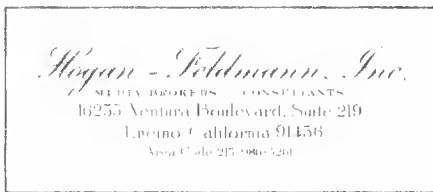 Hogan - Feldmann, Inc.
MEDIA BROKERS CONSULTANTS
16255 Ventura Boulevard, Suite 219
Encino California 91436
Area Code 213